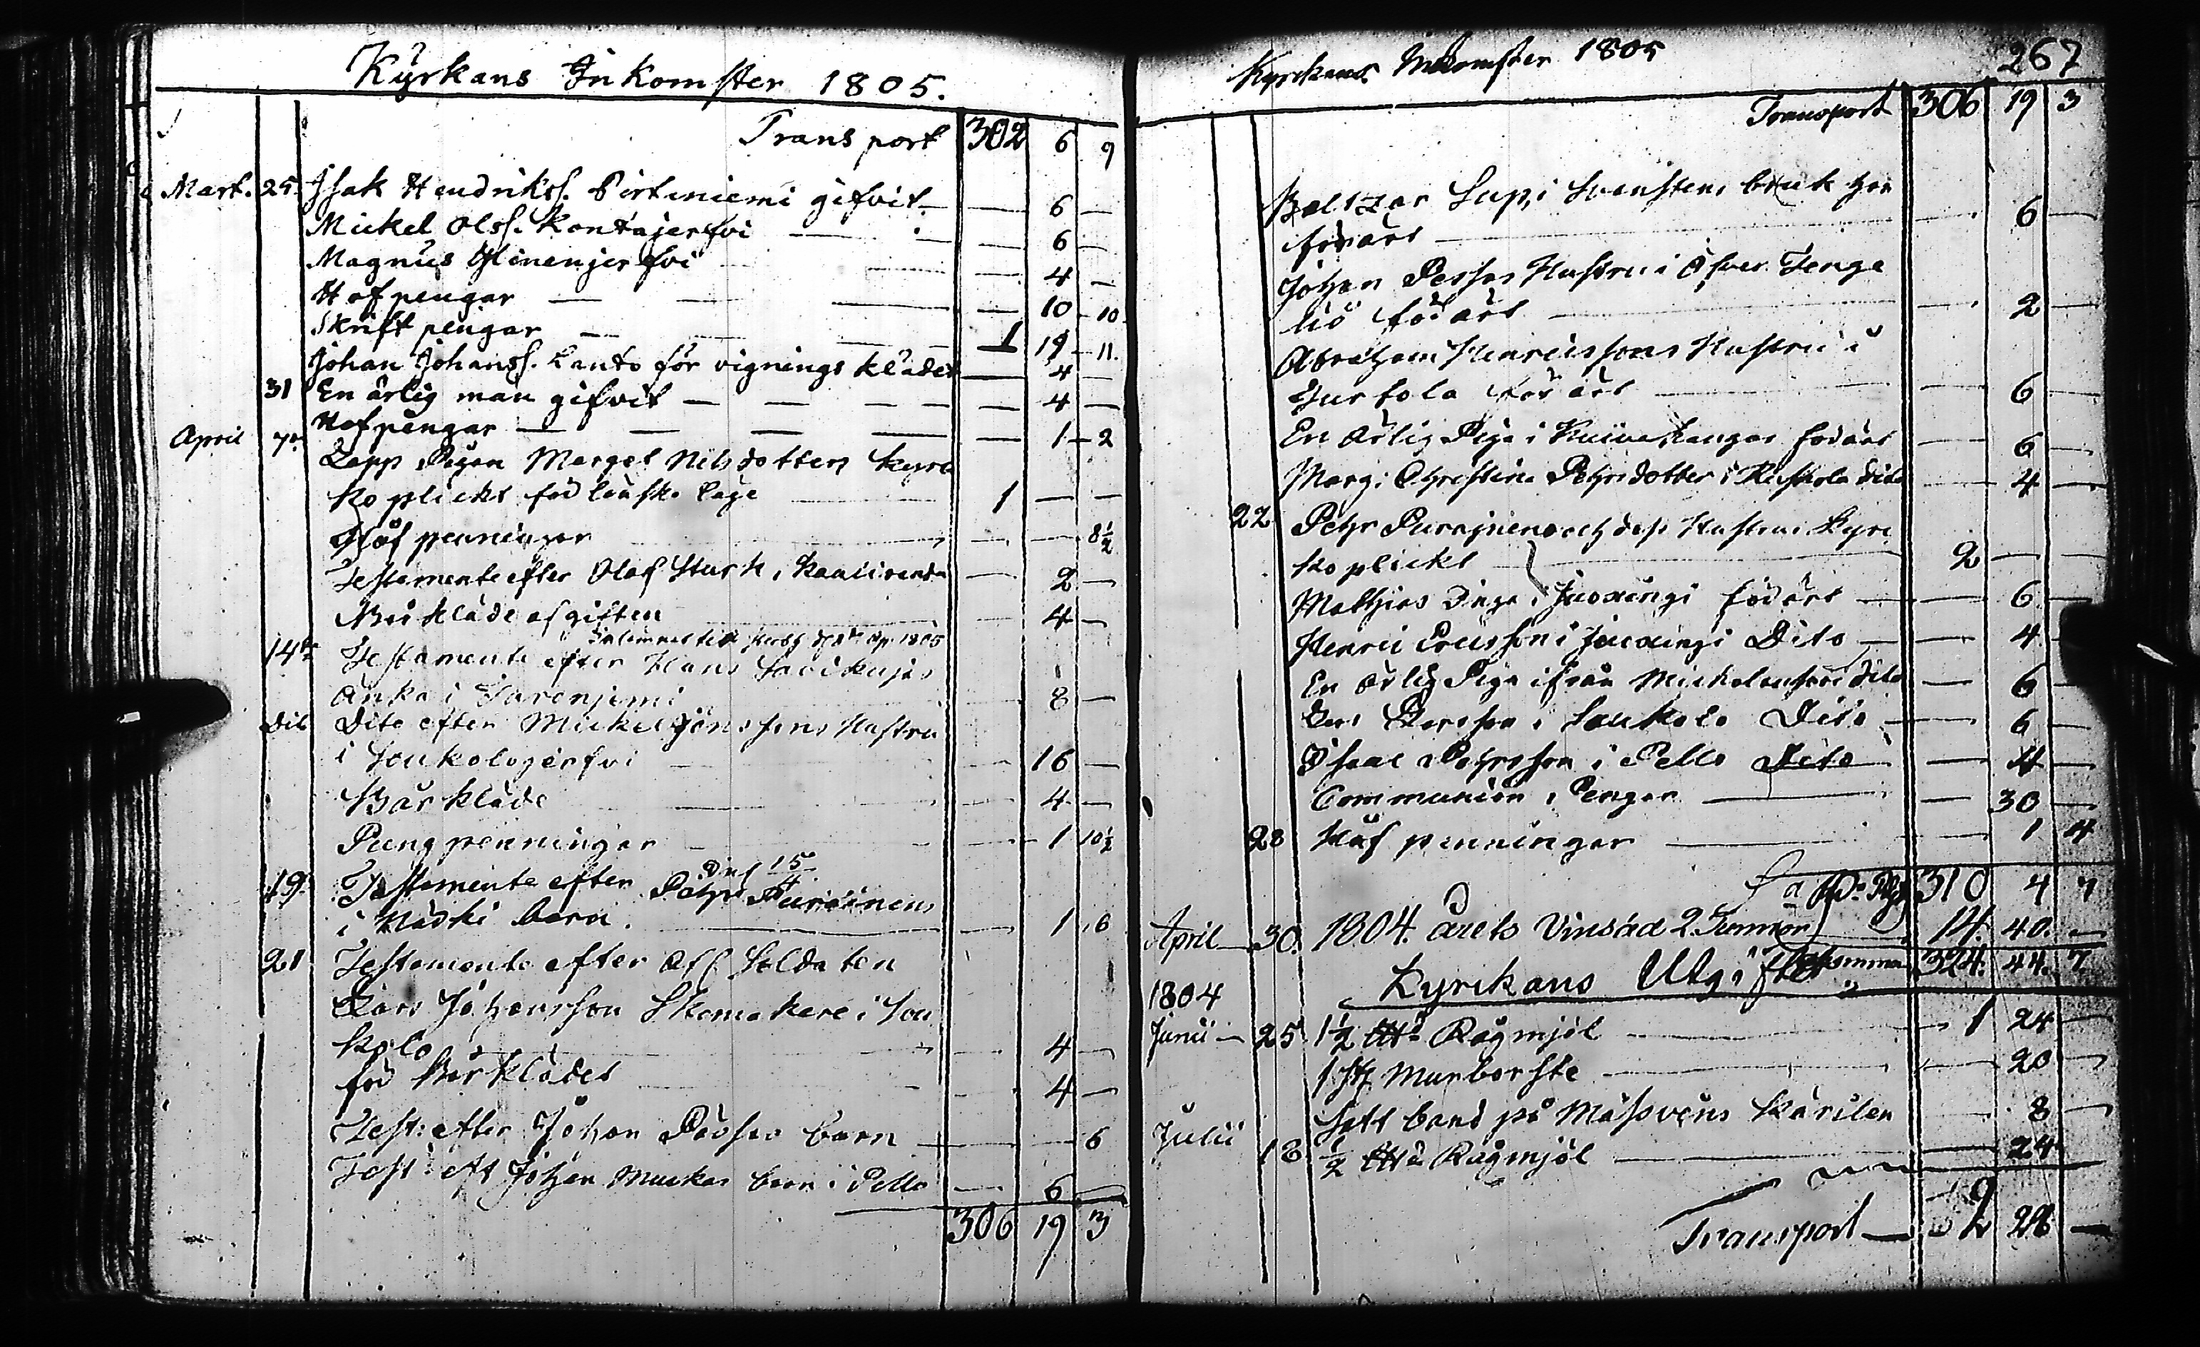 Kyrkans Inkomster 1805.
Transport 302 6 9
Mart. 25. Isak Hendrikss. Pirtiniemi gifvit — 6 —
Mickel Olss. Kontajerfvi — 6 —
Magnus Hinenjerfvi — 4 —
Hofpengar — 10 10
Skriftpengar — 1 19 11
Johan Johanss. Lanto för vignings klädet — 4 —
31 En ärlig man gifvit — 4 —
April 7. Hofpengar — 1 2
Lapp Pigan Marget Nilsdotters kyrc
ko plickt för lönska läge 1 — —
Håf penningar — 8½
Testamente efter Olof Sturk i Kauliranda — 2 —
Bårkläde afgiften — 4 —
14de Testamente efter Hans
Änka i Jarenjemi 8 —
Dito Dito efter Mickel Jönssons Hustru
i Loukolajerfvi 16 —
Bårkläde 4 —
Pungpenningar 1 10½
19. Testamente efter Pehr Puroinens
i Kädki barn. 1 6
21 Testamente efter Afl. Soldaten
Lars Johansson Skomakare i Lou
kola 4 —
för Bårklädet 4 —
Test: efter Johan Påssos barn — 6
Test: eft Johan Muckas barn i Pello — 6 —
306 19 3
Kyrckans Inkomster 1805
267
Transport 306 19 3
Baltzar i Svenstens bruk har
förärt — 6
Johan Perssos Hustru i Öfver Tenge
liö förärt — 2 —
Abraham Henricssons Hustru i
Turtola förärt — 6
En Ärlig Piga i Kuivakangas förärt — 6 —
Marg: Christina Pehrsdotter i Ruskola dito — 4 —
22 Pehr Purainens och dess Hustrus kyrc
ko plickt 2 — —
Mathias i Juoxengi förärt — 6
Henric Ericsson i Juoxengi Dito — 4
En ärlig Piga ifrån dito — 6 —
Lars Larsson i Loukola Dito — 6 —
Isaac Pehrsson i Pello Dito — 4 —
Communion Pengar — 30 —
28 Håf penningar — 1 4
310 4 7
April 30. 1804. årets Vinsäd 2. Tunnor 14 40. —
Summa 324. 44. 7
Kyrckans Utgifter
1804
Junii — 25 1½ Rågmjöl — 1 24 —
1 st Murborste — 20 —
Satt band på Mässvins Kärilen 8 —
Julii 18 ½ Rågmjöl — 24
Transport — 2 28 —